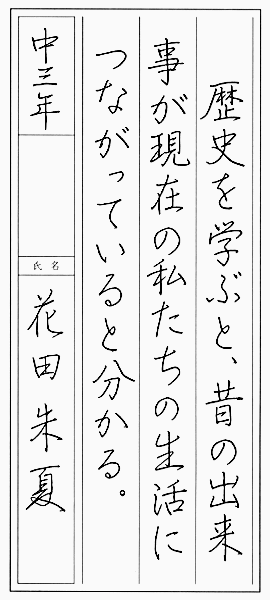 歴史を学ぶと、昔の出来
事が現在の私たちの生活に
つながっていると分かる。
中三年
氏名
花田朱夏